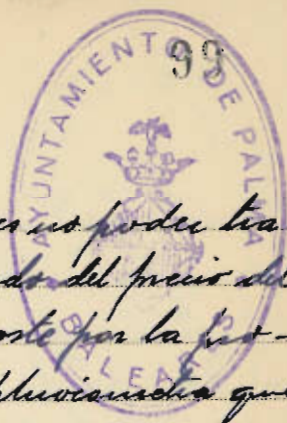 99
AYUNTAMIENTO DE PALMA
BALEARES
es no poder tra
do del precio del
oste por la pro-
que